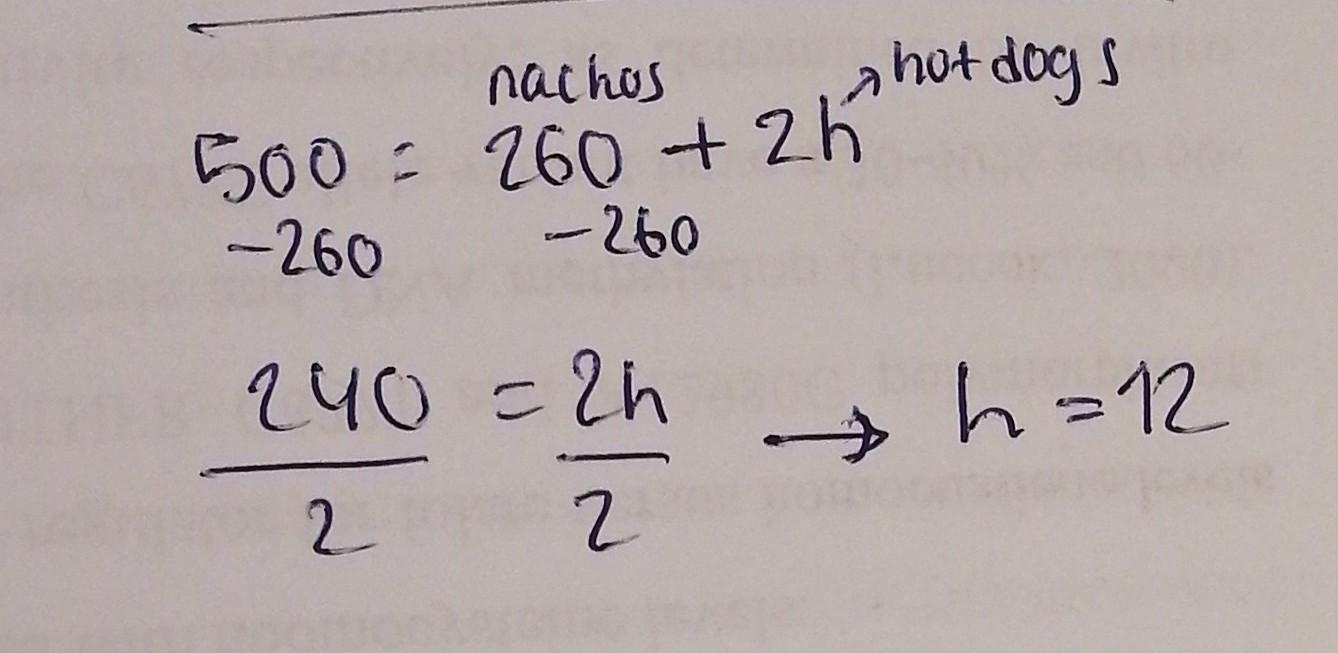 nachos ↗hot dogs
500 = 260 + 2h
-260 -260
240 = 2h → h = 12
2 2